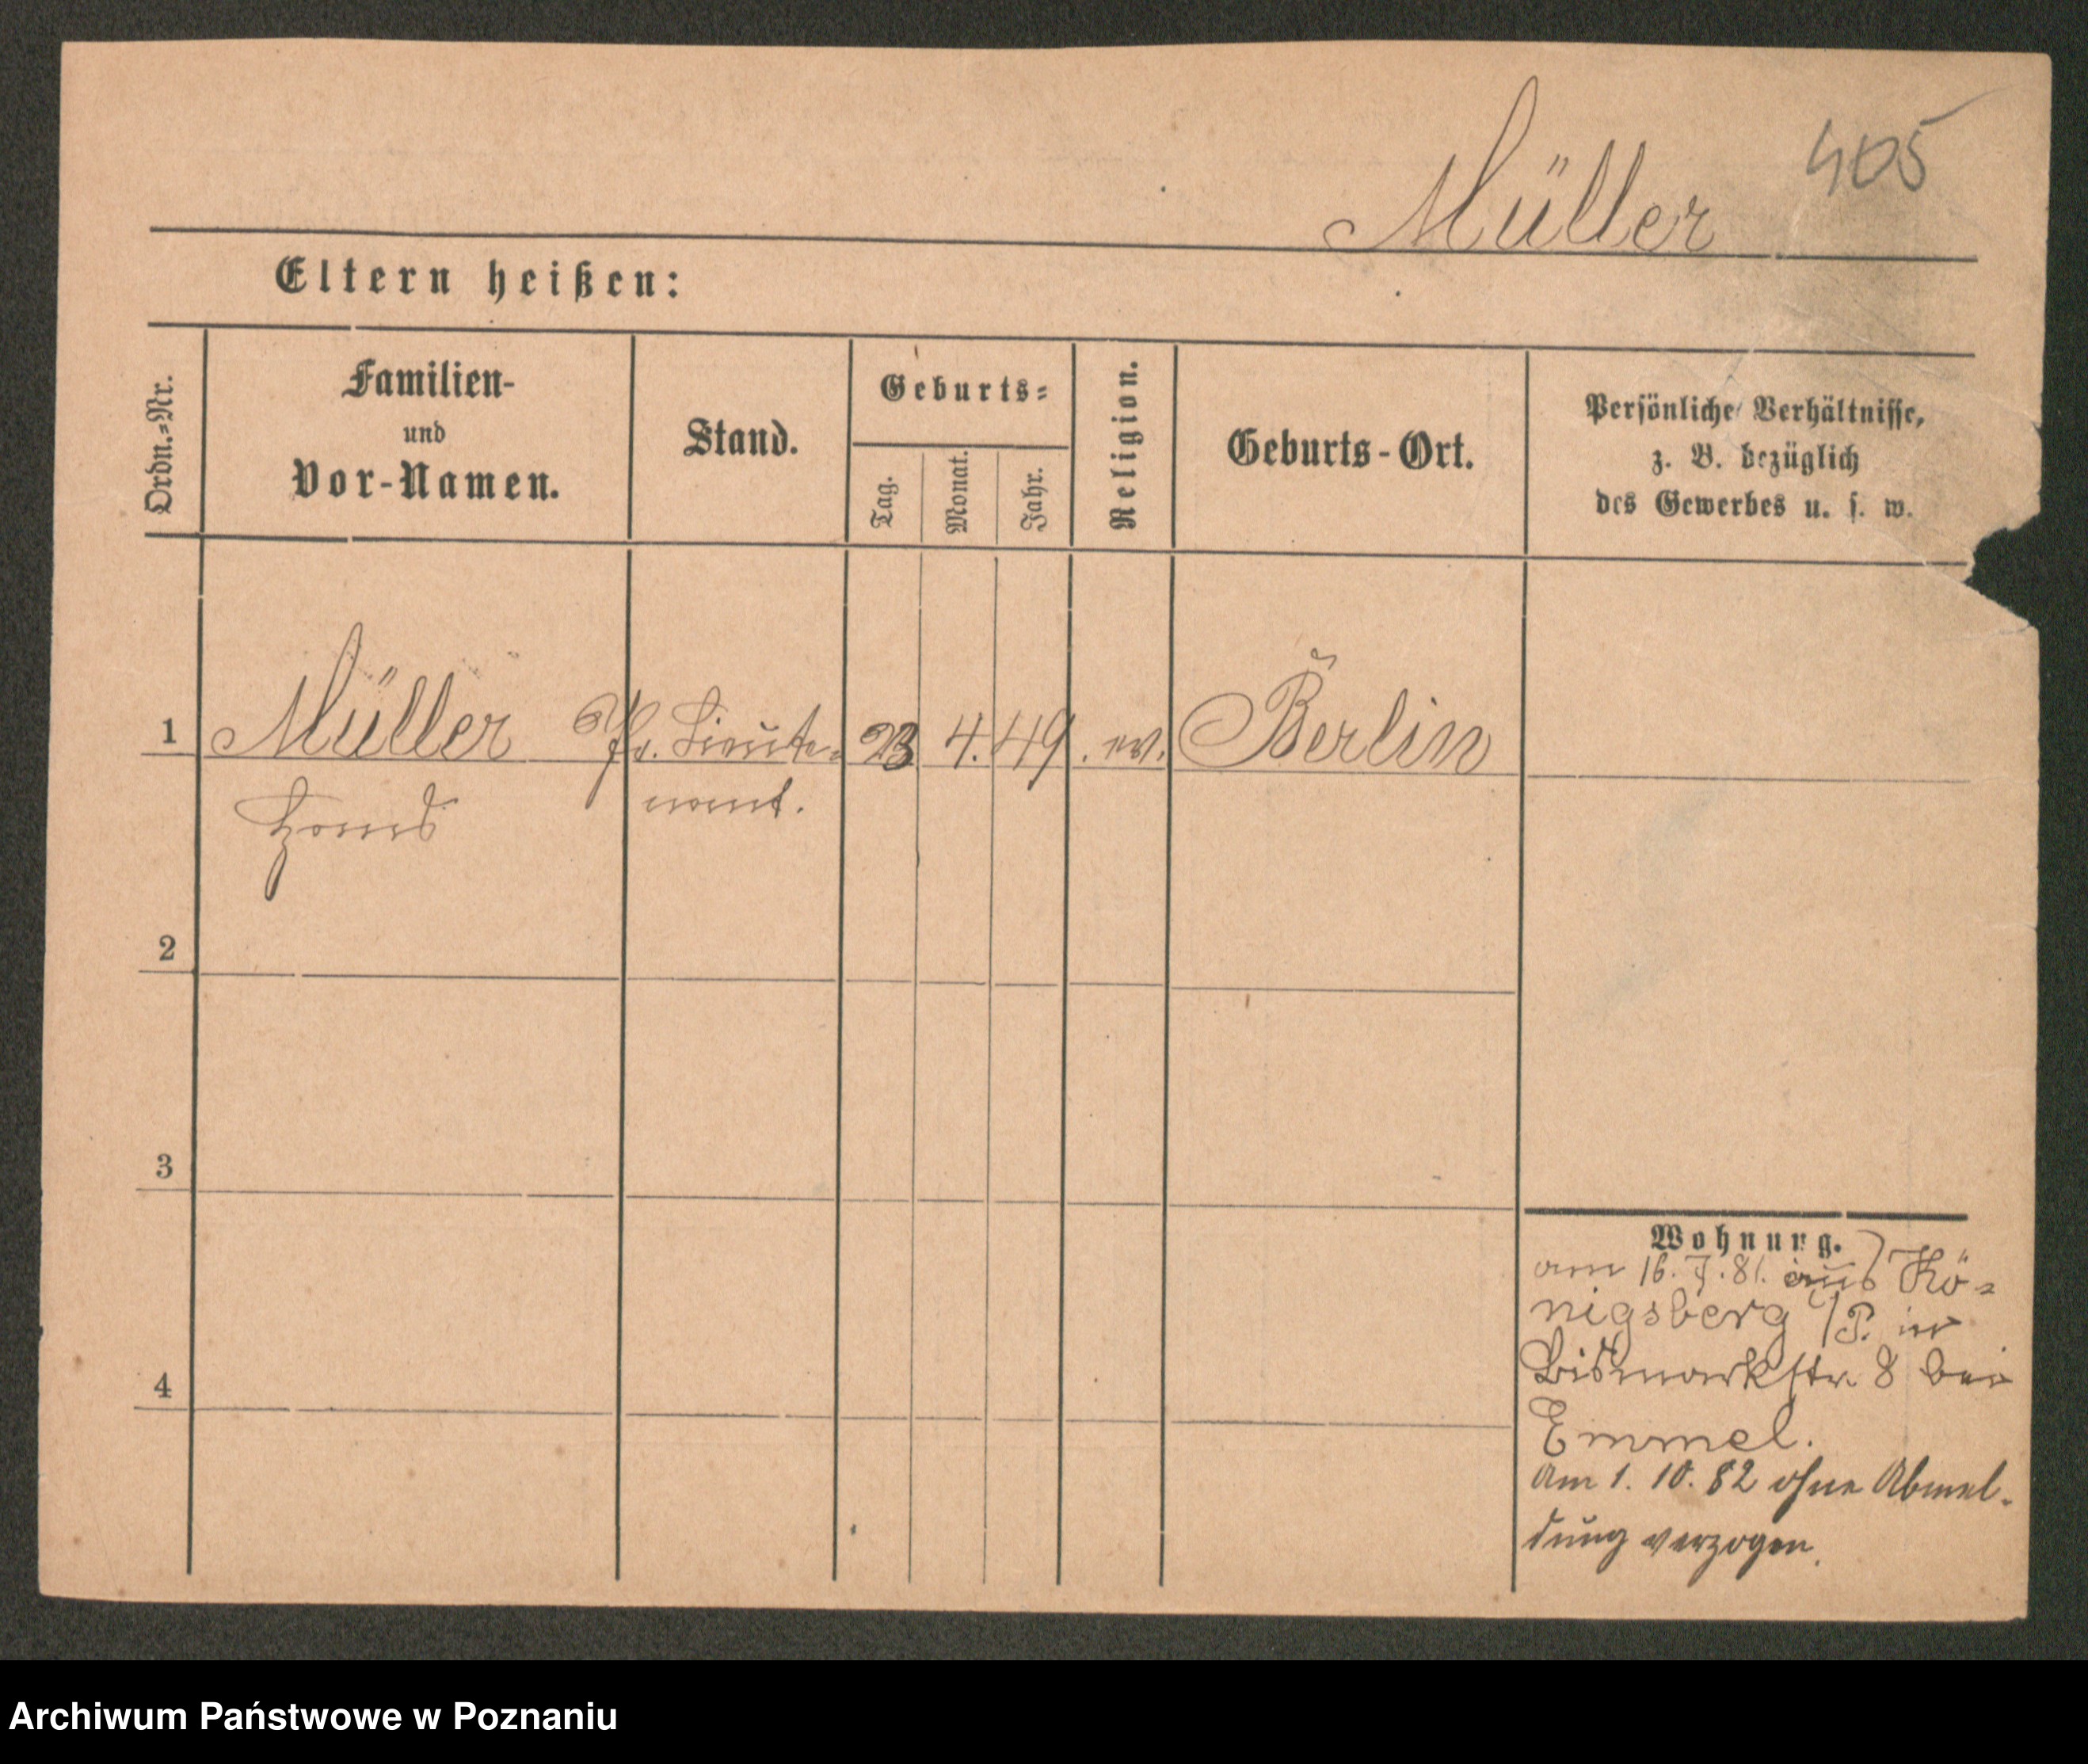 405
Müller
Eltern heißen:
Ordn.=Nr.
Familien-
und
Vor-Namen.
Stand.
Geburts=
Tag.
Monat.
Jahr.
Religion.
Geburts-Ort.
Persönliche Verhältnisse,
z. B. bezüglich
des Gewerbes u. s. w.
1 Müller Pr. Lieute- 23 4. 49. ev. Berlin
Hans nant.
2
3
4
Wohnung.
am 16. 7. 81. aus Kö-
nigsberg i/P. in
Bismarkstr. 8 bei
Emmel.
Am 1. 10. 82 ohne Abmel-
dung verzogen.
Archiwum Państwowe w Poznaniu